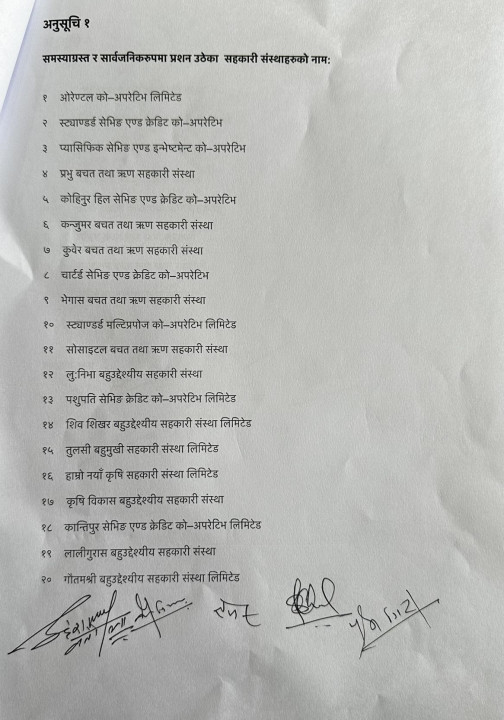 अनुसूचि १
समस्याग्रस्त र सार्वजनिकरुपमा प्रशन उठेका सहकारी संस्थाहरुको नाम:
१ ओरेण्टल को–अपरेटिभ लिमिटेड
२ स्ट्याण्डर्ड सेभिङ एण्ड क्रेडिट को–अपरेटिभ
३ प्यासिफिक सेभिङ एण्ड इन्भेष्टमेन्ट को–अपरेटिभ
४ प्रभु बचत तथा ऋण सहकारी संस्था
५ कोहिनुर हिल सेभिङ एण्ड क्रेडिट को–अपरेटिभ
६ कन्जुमर बचत तथा ऋण सहकारी संस्था
७ कुवेर बचत तथा ऋण सहकारी संस्था
८ चार्टर्ड सेभिङ एण्ड क्रेडिट को–अपरेटिभ
९ भेगास बचत तथा ऋण सहकारी संस्था
१० स्ट्याण्डर्ड मल्टिप्रपोज को–अपरेटिभ लिमिटेड
११ सोसाइटल बचत तथा ऋण सहकारी संस्था
१२ लु:निभा बहुउद्देश्यीय सहकारी संस्था
१३ पशुपति सेभिङ क्रेडिट को–अपरेटिभ लिमिटेड
१४ शिव शिखर बहुउद्देश्यीय सहकारी संस्था लिमिटेड
१५ तुलसी बहुमुखी सहकारी संस्था लिमिटेड
१६ हाम्रो नयाँ कृषि सहकारी संस्था लिमिटेड
१७ कृषि विकास बहुउद्देश्यीय सहकारी संस्था
१८ कान्तिपुर सेभिङ एण्ड क्रेडिट को–अपरेटिभ लिमिटेड
१९ लालीगुरास बहुउद्देश्यीय सहकारी संस्था
२० गौतमश्री बहुउद्देश्यीय सहकारी संस्था लिमिटेड